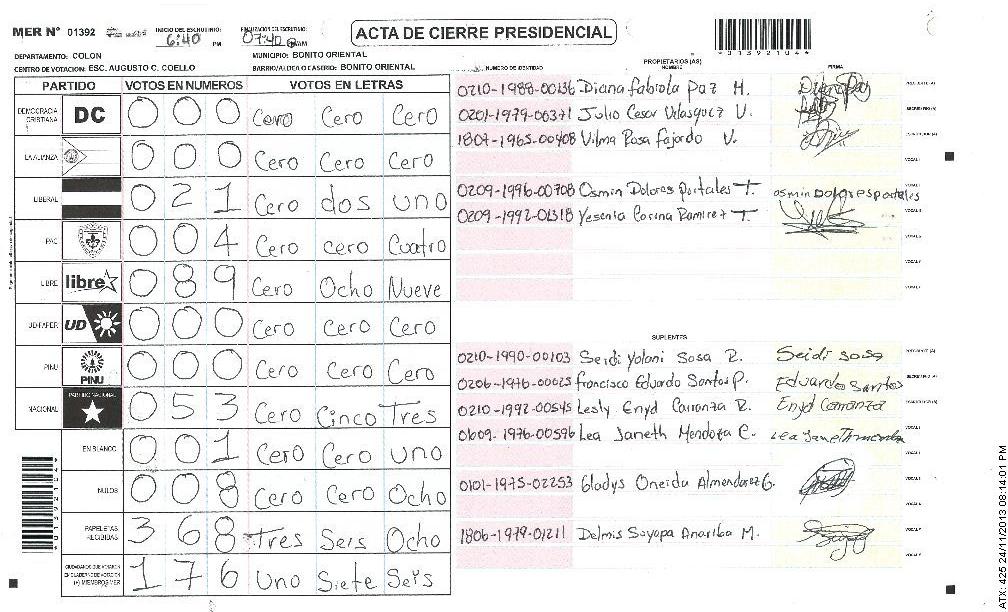 MER N° 01392 INICIO DEL ESCRUTINIO: 6:40 PM FINALIZACION DEL ESCRUTINIO: 07:40 AM
ACTA DE CIERRE PRESIDENCIAL
DEPARTAMENTO: COLON MUNICIPIO: BONITO ORIENTAL
CENTRO DE VOTACION: ESC. AUGUSTO C. COELLO BARRIO/ALDEA O CASERIO: BONITO ORIENTAL
PARTIDO VOTOS EN NUMEROS VOTOS EN LETRAS
DEMOCRACIA CRISTIANA DC 0 0 0 Cero Cero Cero
LA ALIANZA 0 0 0 Cero Cero Cero
LIBERAL 0 2 1 Cero dos uno
PAC 0 0 4 Cero cero Cuatro
LIBRE libre 0 8 9 Cero Ocho Nueve
UD-FAPER UD 0 0 0 Cero Cero Cero
PINU PINU 0 0 0 Cero Cero Cero
NACIONAL PARTIDO NACIONAL 0 5 3 Cero Cinco Tres
EN BLANCO 0 0 1 Cero Cero uno
NULOS 0 0 8 Cero Cero Ocho
PAPELETAS RECIBIDAS 3 6 8 Tres Seis Ocho
CIUDADANOS QUE VOTARON EN CUADERNO DE VOTACION (+) MIEMBROS MER 1 7 6 Uno Siete Seis
PROPIETARIOS (AS)
NUMERO DE IDENTIDAD NOMBRE FIRMA
0210-1988-00136 Diana fabiola Paz M.
0201-1979-00371 Julio Cesar Velasquez V.
1807-1965-00408 Vilma Rosa Fajardo V.
0209-1996-00708 Osmin Dolores Portales T. osmin Dolores portales
0209-1992-01318 Yesenia Corina Ramirez T.
SUPLENTES
0210-1990-00103 Seidi Yolani Sosa R. Seidi sosa
0206-1976-00025 francisco Eduardo Santos P. Eduardo Santos
0210-1992-00545 Lesly Enyd Carranza R. Enyd Carranza
1609-1976-00596 Lea Janeth Mendoza C.
0101-1975-02253 Gladys Oneida Almendarez G.
1806-1979-01211 Delmis Soyapa Anariba M.
013921044
ATX: 425 24/11/2013 08:14:01 PM